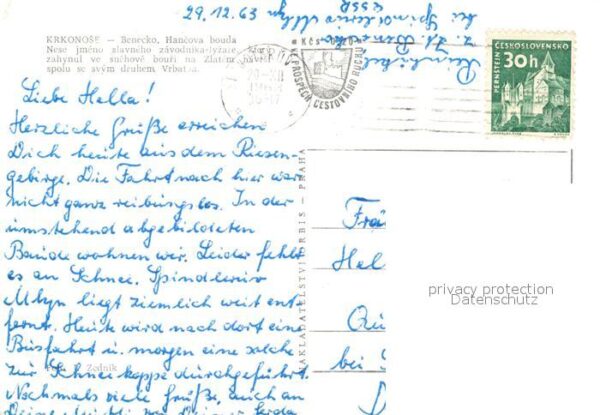 29.12.63
ČSSR
KRKONOŠE — Benecko, Hančova bouda
Nese jméno slavného závodníka-lyžaře, který
zahynul ve sněhové bouři na Zlatém návrší
spolu se svým druhem Vrbatou
Kčs 1,20
V PROSPĚCH CESTOVNÍHO RUCHU
ČESKOSLOVENSKO
30h
PERNŠTEJN
Liebe Hella!
Herzliche Grüße erreichen
Dich heute aus dem Riesen-
gebirge. Die Fahrt nach hier war
nicht ganz reibungslos. In der
umstehend abgebildeten
Baude wohnen wir. Leider fehlt
es an Schnee. Spindleruv
Mlyn liegt ziemlich weit ent
fernt. Heute wird nach dort eine
Busfahrt u. morgen eine solche
zur Schneekoppe durchgeführt.
Nochmals viele Grüße, auch an
Deine
Zedník
NAKLADATELSTVÍ ORBIS - PRAHA
Frä
Hel
bei
privacy protection
Datenschutz